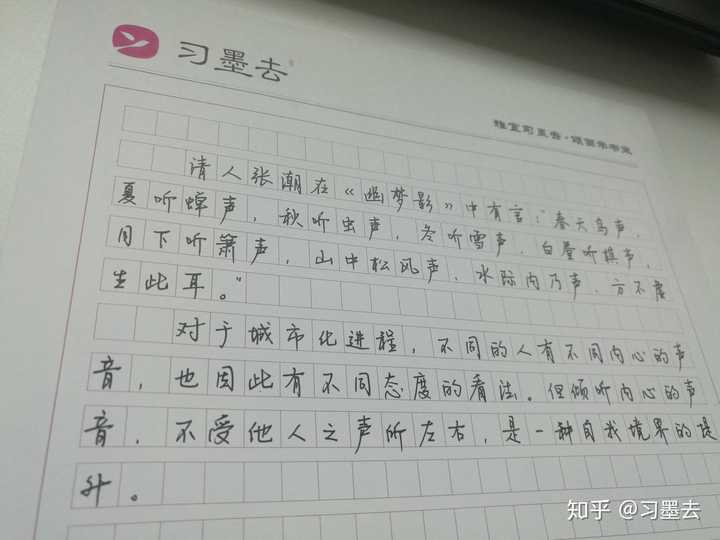 习墨去
清人张潮在《幽梦影》中有言："春天鸟声，
夏听蝉声，秋听虫声，冬听雪声，白昼听棋声，
月下听箫声，山中松风声，水际内乃声，方不虚
生此耳。"
对于城市化进程，不同的人有不同内心的声
音，也因此有不同态度的看法。但倾听内心的声
音，不受他人之声所左右，是一种自我境界的提
升。
知乎 @习墨去